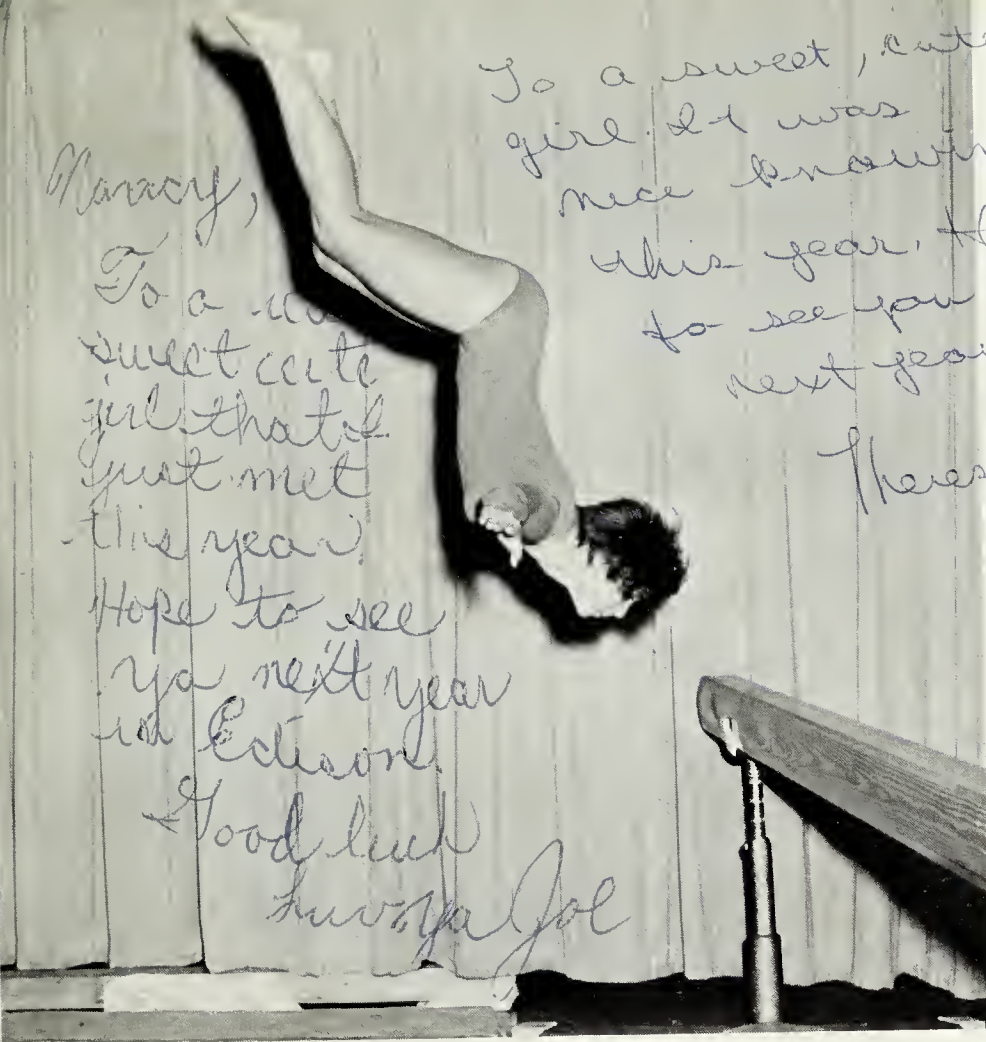 Nancy,
To a
sweet cute
girl that I
just met
this year.
Hope to see
ya next year
in Edison
Good luck
Luv Ya Joe
To a sweet, cute
girl. It was
nice knowin
this year. H
to see you
next year
Theres